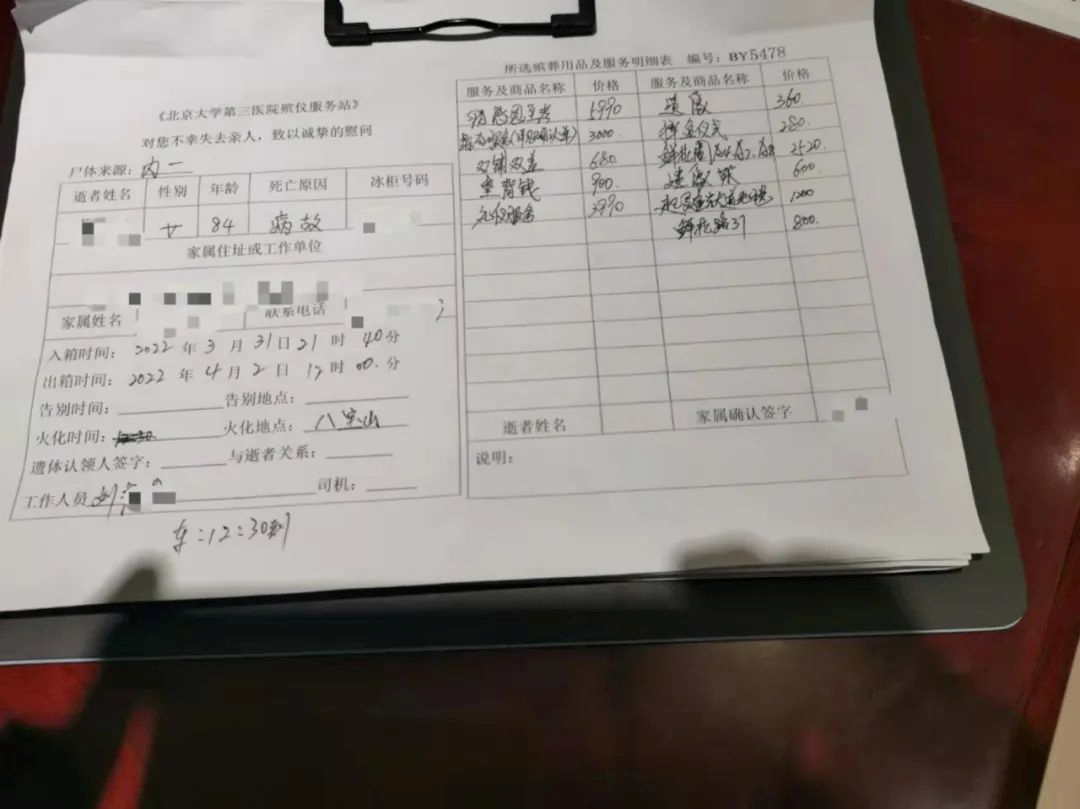 《北京大学第三医院殡仪服务站》
对您不幸失去亲人，致以诚挚的慰问
尸体来源：内一
逝者姓名 性别 年龄 死亡原因 冰柜号码
女 84 病故
家属住址或工作单位
家属姓名 联系电话
入箱时间：2022年3月31日21时40分
出箱时间：2022年4月2日12时00分
告别时间： 告别地点：
火化时间： 火化地点：八宝山
遗体认领人签字： 与逝者关系：
工作人员 司机：
车：12：30到
所选殡葬用品及服务明细表 编号：BY5478
服务及商品名称 价格 服务及商品名称 价格
5990 遗像 360
3000 仪式 280
双铺双盖 680 2520
垫背钱 900 600
礼仪服务 3990
鲜花 800
逝者姓名 家属确认签字
说明：